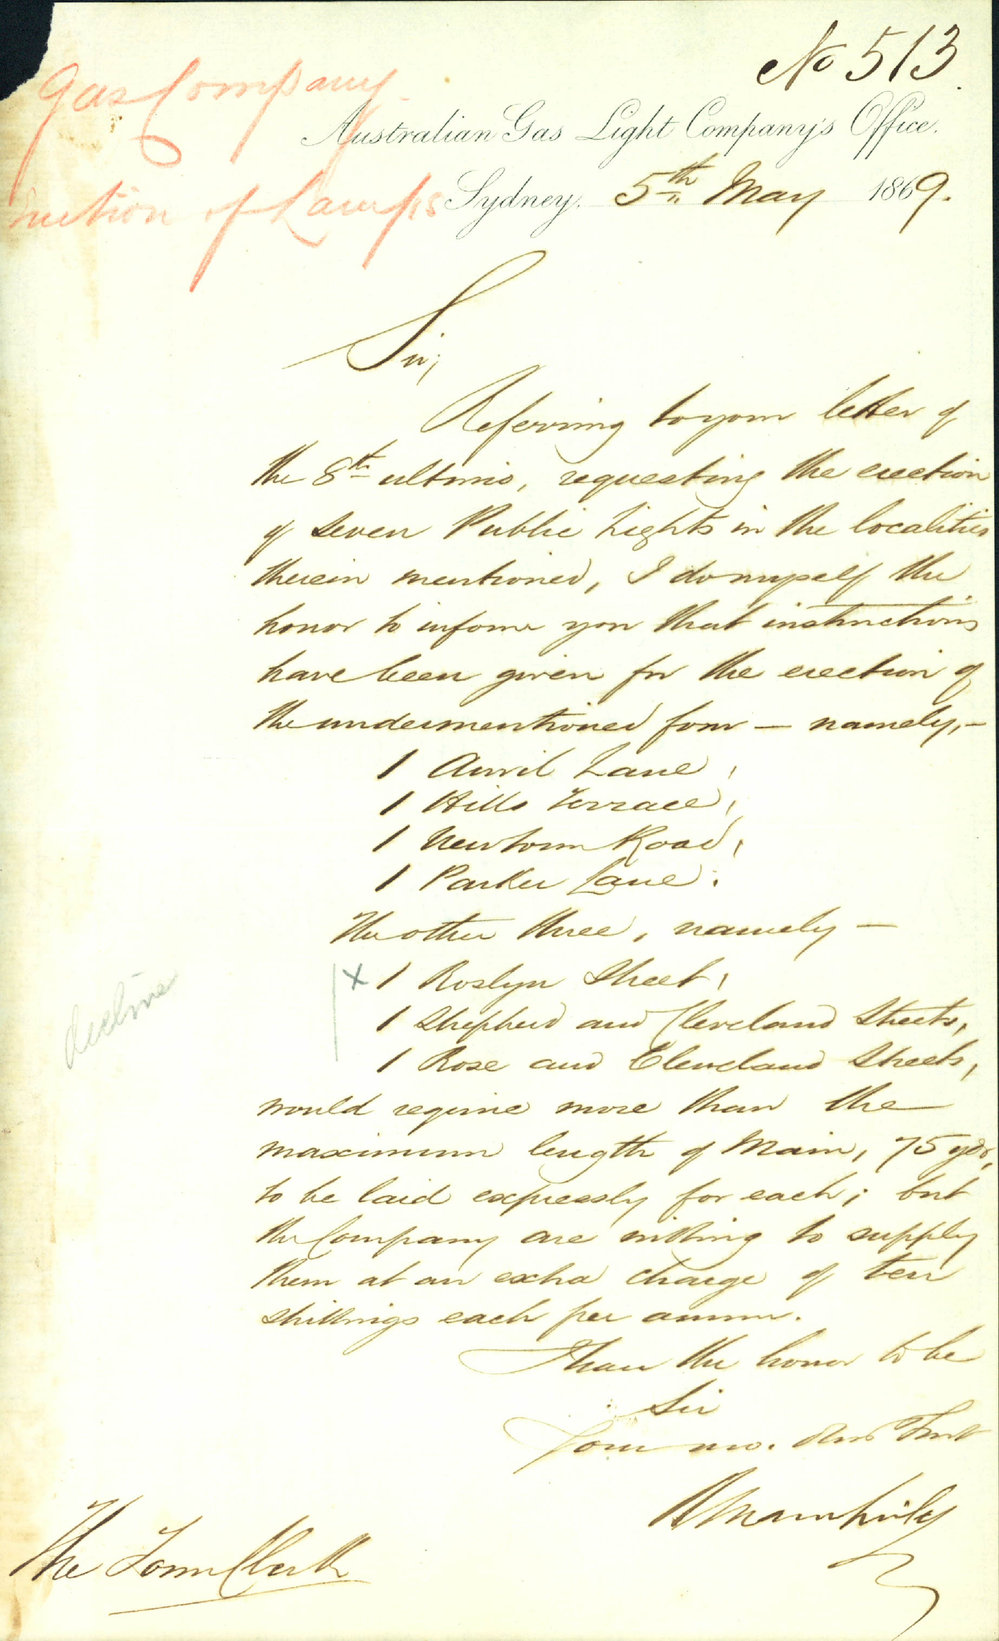 No 513
Gas Company
Australian Gas Light Company's Office.
Sydney. 5th May 1869.
of Lamps
Sir,
Referring to your letter of
the 8th ultimo, requesting the erection
of seven Public Lights in the localities
therein mentioned, I do myself the
honor to inform you that instructions
have been given for the erection of
the undermentioned four — namely, —
1 Anvil Lane,
1 Hills Terrace,
1 Newtown Road,
1 Parker Lane.
The other three, namely —
x 1 Roslyn Street,
1 Shepherd and Cleveland Streets,
1 Rose and Cleveland Streets,
decline
would require more than the
maximum length of Main, 75 yds,
to be laid expressly for each; but
the Company are willing to supply
them at an extra charge of ten
shillings each per annm.
I have the honor to be
Sir
Your mo. Obt Servt
The Town Clerk